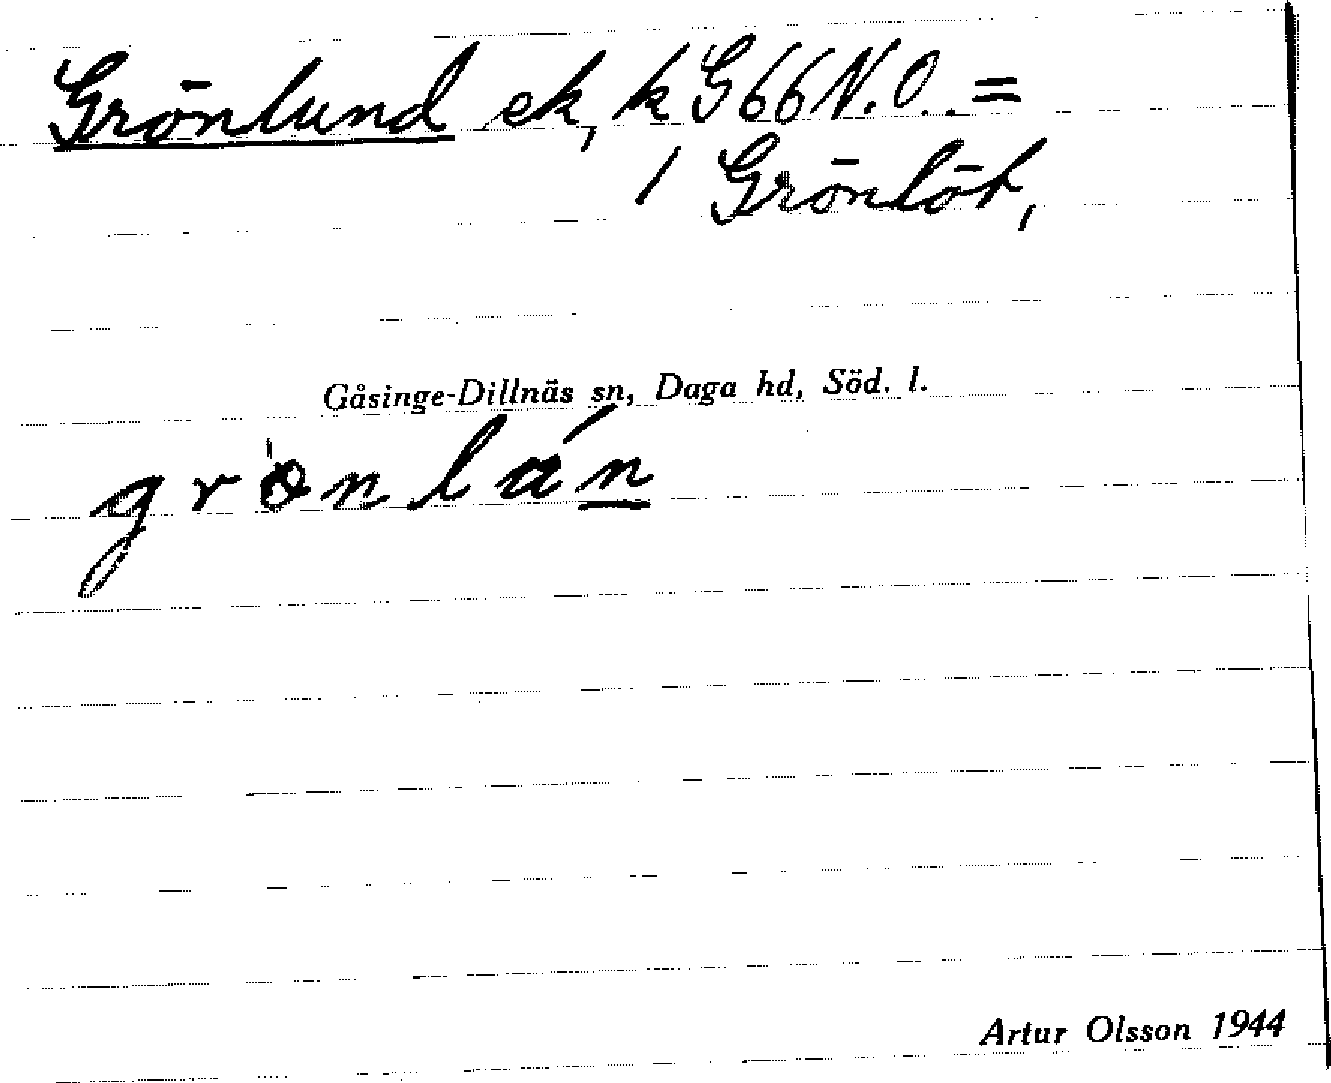 Grönlund ek, k G66N.O. =
1 Grönlöt,
Gåsinge-Dillnäs sn, Daga hd, Söd. l.
grònlán
Artur Olsson 1944